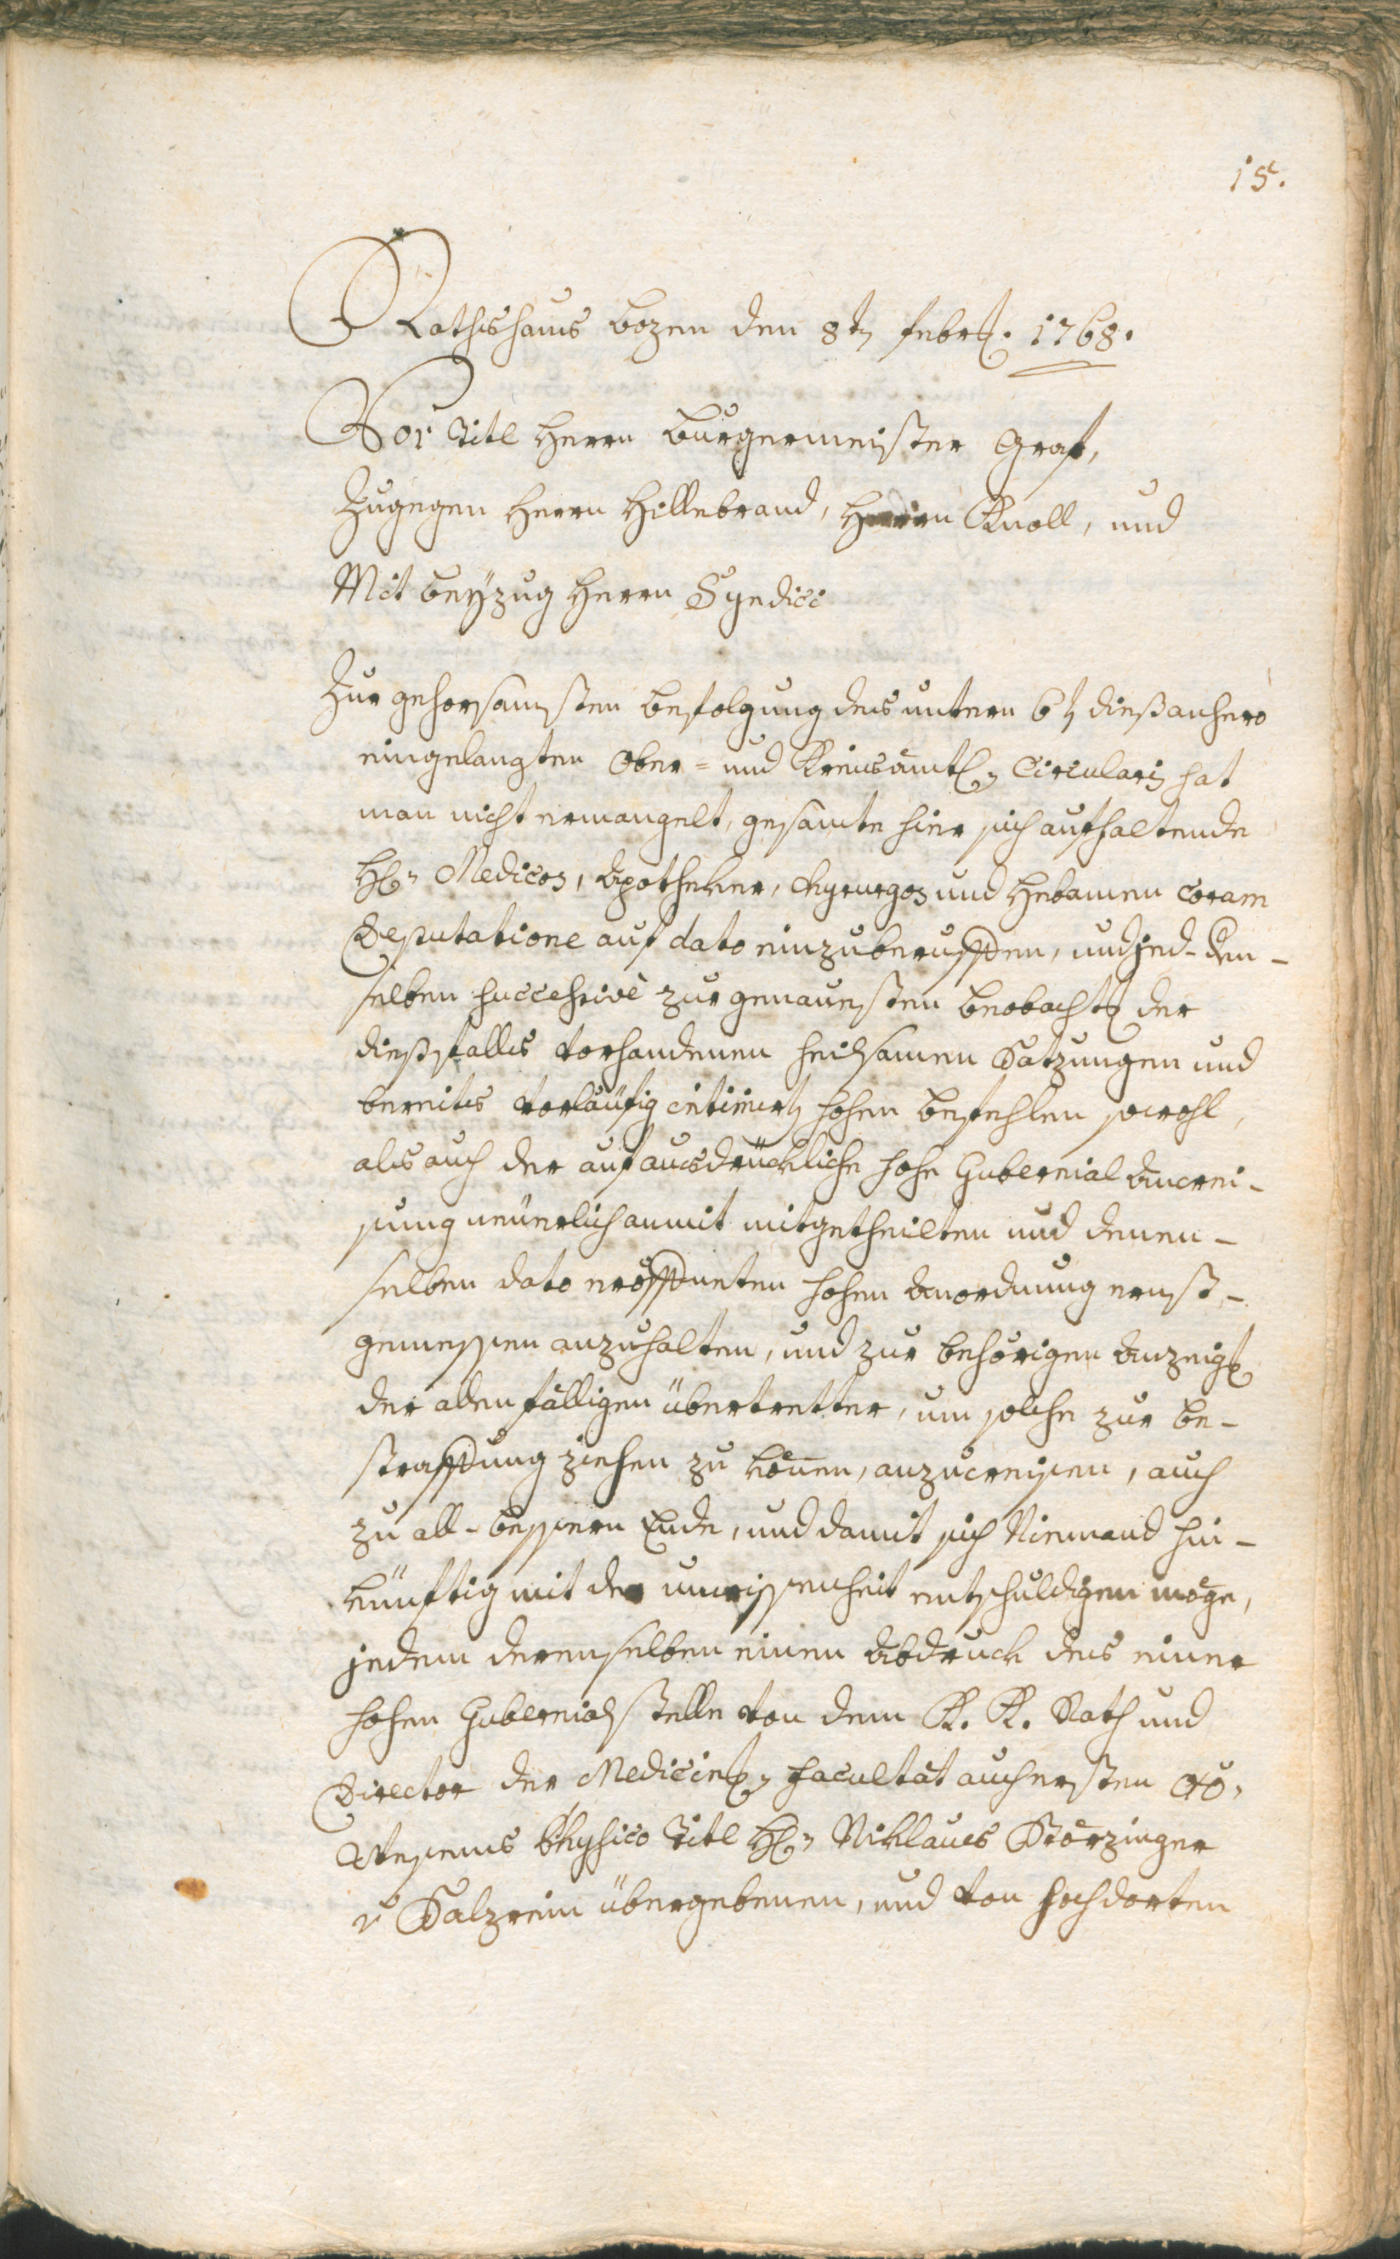 15.
Rathshaus Bozen den 8tn Febr. 1768.
Vor Titl Herrn Burgermeister Graf,
Zugegen Herrn Hillebrand, Herrn Knoll, und
Mit Beÿzug Herrn Syndici
Zur gehorsamsten Befolgung des untern 6t dieß anhero
eingelangten Ober- und Kreisämtl. Circularis hat
man nicht ermangelt, gesamte hier sich aufhaltende
H. Medicos, Apotheker, Chyrurgos und Hebamen coram
Deputatione auf dato einzuberuffen, und jed- den-
selben successivè zur genauesten Beobacht der
dießfalls vorhandenen heilsamen Satzungen und
bereits vorläufig intimirt hohen Befehlen sowohl,
als auch der auf ausdrückliche hohe Gubernial Anwei-
sung neuerlich anmit mitgetheilten und denen-
selben dato eröffneten hohen Anordnung ernst-
gemessen anzuhalten, und zur behörigen Anzeig
der allenfälligen übertretter, um solche zur Be-
straffung ziehen zu können, anzuweisen, auch
zu all-bessern Ende, und damit sich Niemand hin-
künftig mit der unwissenheit entschuldigen möge,
jedem derenselben einen Abdruck des einer
hohen Gubernialstelle von dem K. K. Rath und
Director der Medicin. Facultät auch ersten OÖ.
Wesens Physico Titl H. Niklaus Störzinger
v Salzrein übergebenen, und von hochdorten